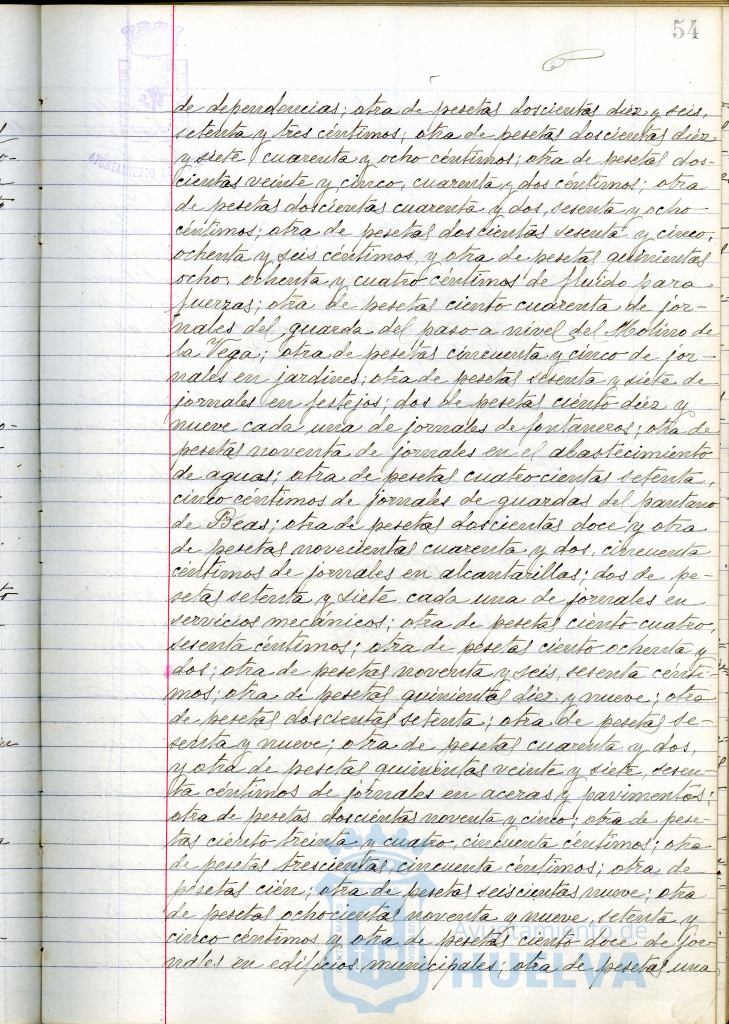 54
AYUNTAMIENTO
de dependencias; otra de pesetas doscientas diez y seis,
setenta y tres céntimos; otra de pesetas doscientas diez
y siete cuarenta y ocho céntimos; otra de pesetas dos-
cientas veinte y cinco, cuarenta y dos céntimos; otra
de pesetas doscientas cuarenta y dos, sesenta y ocho
céntimos; otra de pesetas doscientas sesenta y cinco,
ochenta y seis céntimos, y otra de pesetas quinientas
ocho, ochenta y cuatro céntimos de fluido para
fuerzas; otra de pesetas ciento cuarenta de jor-
nales del guarda del paso a nivel del Molino de
la Vega; otra de pesetas cincuenta y cinco de jor-
nales en jardines; otra de pesetas sesenta y siete de
jornales en festejos; dos de pesetas ciento diez y
nueve cada una de jornales de fontaneros; otra de
pesetas noventa de jornales en el abastecimiento
de aguas; otra de pesetas cuatrocientas setenta,
cinco céntimos de jornales de guardas del pantano
de Beas; otra de pesetas doscientas doce y otra
de pesetas novecientas cuarenta y dos, cincuenta
céntimos de jornales en alcantarillas; dos de pe-
setas setenta y siete cada una de jornales en
servicios mecánicos; otra de pesetas ciento cuatro,
sesenta céntimos; otra de pesetas ciento ochenta y
dos; otra de pesetas noventa y seis, sesenta cénti-
mos; otra de pesetas quinientas diez y nueve; otra
de pesetas doscientas setenta; otra de pesetas se-
senta y nueve; otra de pesetas cuarenta y dos,
y otra de pesetas quinientas veinte y siete, sesen-
ta céntimos de jornales en aceras y pavimentos;
otra de pesetas doscientas noventa y cinco; otra de pese-
tas ciento treinta y cuatro, cincuenta céntimos; otra
de pesetas trescientas, cincuenta céntimos; otra de
pesetas cién; otra de pesetas seiscientas nueve; otra
de pesetas ochocientas noventa y nueve, setenta y
cinco céntimos y otra de pesetas ciento doce de jor-
nales en edificios municipales; otra de pesetas una
Ayuntamiento de
HUELVA